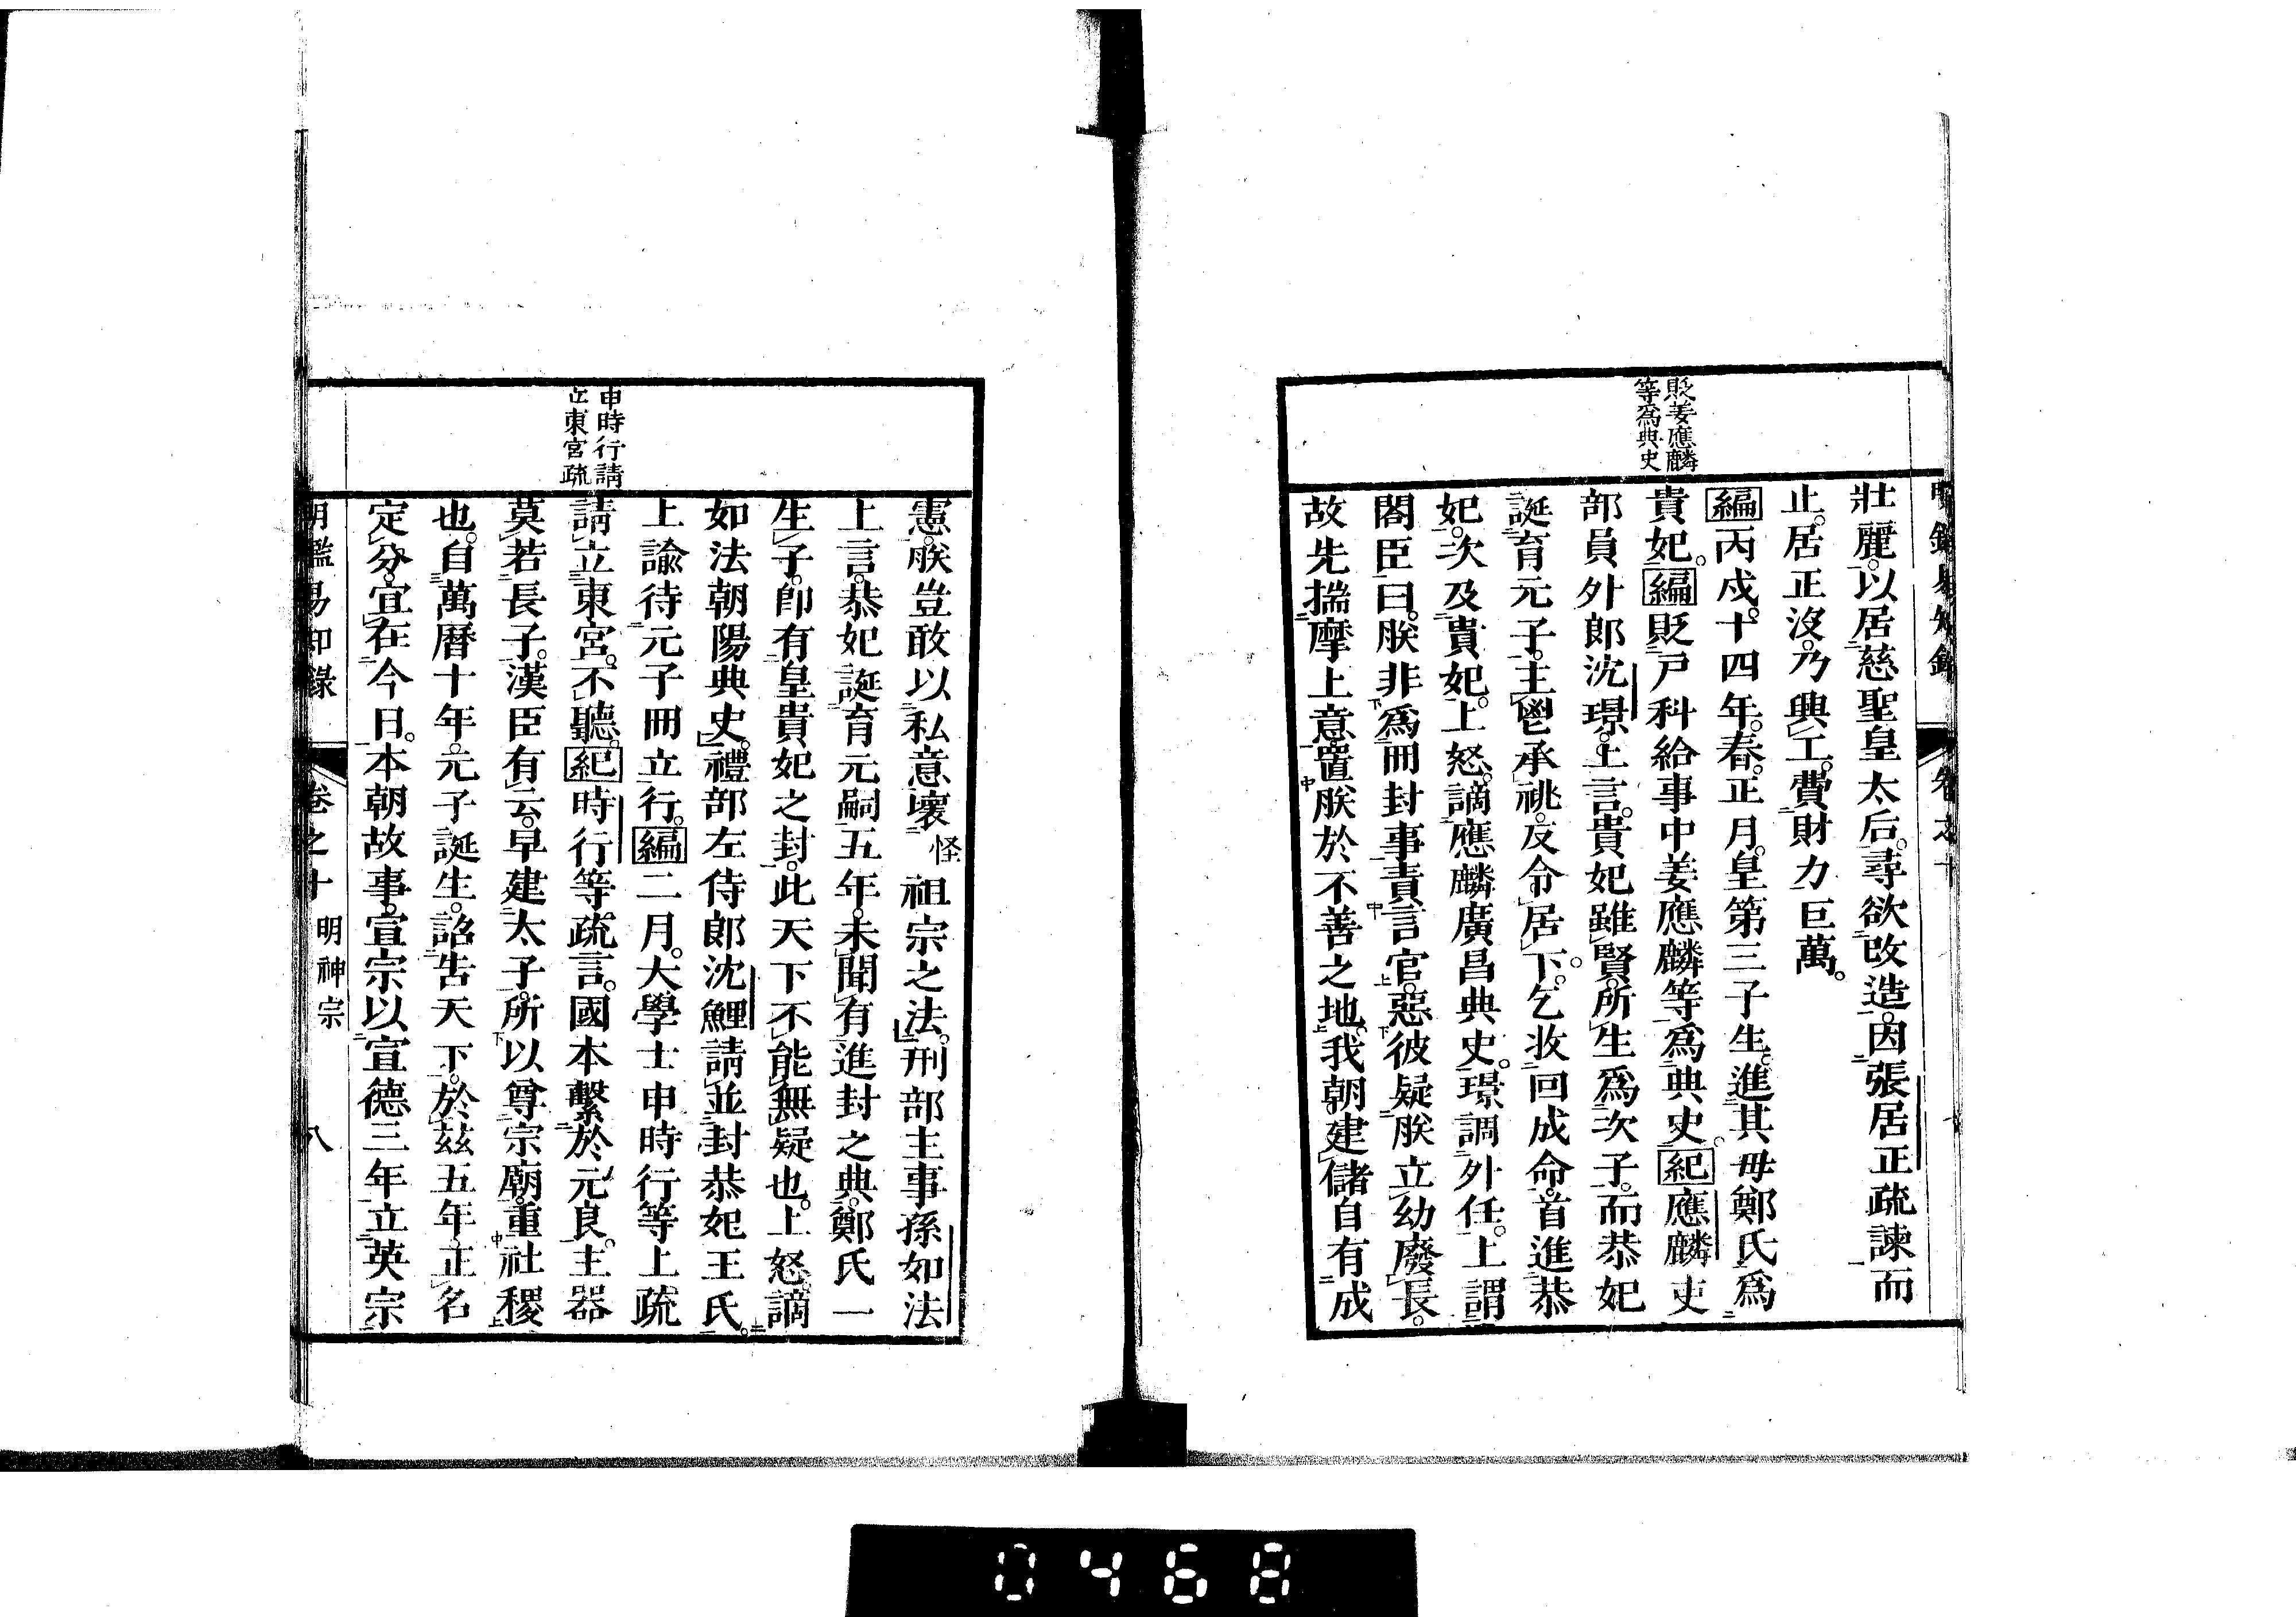 貶姜應麟
等爲典史
壯麗。以居慈聖皇太后。尋欲改造。因張居正疏諫而
止。居正沒。乃興工。費財力巨萬。
編丙戍。十四年。春。正月。皇第三子生。進其母鄭氏爲
貴妃。編貶戸科給事中姜應麟等爲典史。紀應麟吏
部員外郎沈璟。上言。貴妃雖賢。所生爲次子。而恭妃
誕育元子。主鬯承祧。反令居下。乞收回成命。首進恭
妃。次及貴妃。上怒。謫應麟廣昌典史。璟調外任。上謂
閣臣曰。朕非爲冊封事責言官。惡彼疑朕立幼廢長。
故先揣摩上意。置朕於不善之地。我朝建儲自有成
申時行請
立東宮疏
憲。朕豈敢以私意壞 怪 祖宗之法。刑部主事孫如法
上言。恭妃誕育元嗣五年。未聞有進封之典。鄭氏一
生子。卽有皇貴妃之封。此天下不能無疑也。上怒。謫
如法朝陽典史。禮部左侍郎沈鯉請並封恭妃王氏。
上諭待元子冊立行。編二月。大學士申時行等上疏
請立東宮。不聽。紀時行等疏言。國本繫於元良。主器
莫若長子。漢臣有云。早建太子。所以尊宗廟。重社稷
也。自萬曆十年。元子誕生。詔告天下。於茲五年。正名
定分。宜在今日。本朝故事。宣宗以宣德三年立英宗
明鑑易知錄 卷之十 明神宗 八
0468